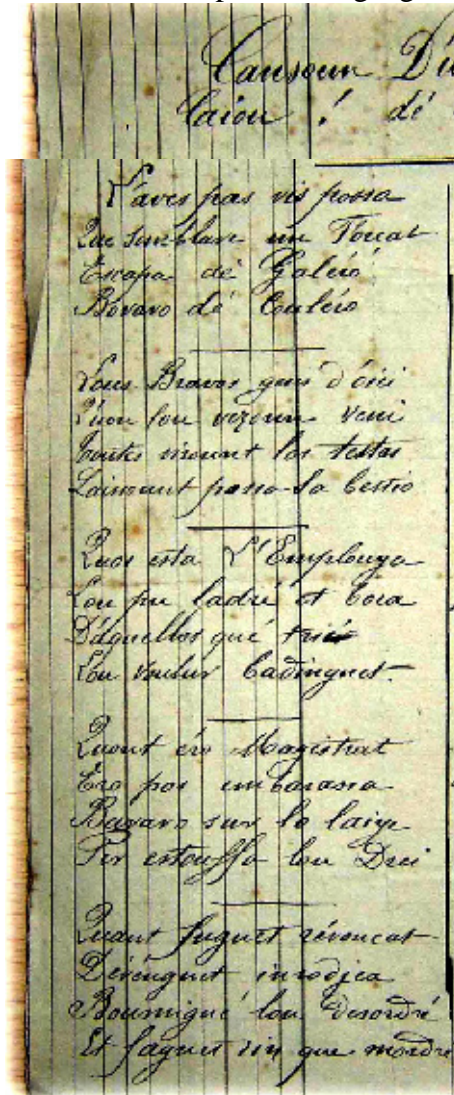 Cansoun D
Caiou ! dé
L'avès pas vis passa
Que semblavo un Foucat
Escapa dé Galéro
Bavavo dé Couléro
Lous Bravos gens d'éici
Quou lou vezoun veni
toutés virount las testas
Laissount passa la bestio
Quos esta L'Emplouya
Lou pu ladré et
D'aquellos qué trié
Lou vouluv Badinguet.
Quant èro Magistrat
Ero pas embarassa
Bavavo sur lo laige
Per estouffa lou Drei
Quant fuguet révoucat
Déséuguet inrodjea
Boumigué lou desordré
Et faguet rin que mordré